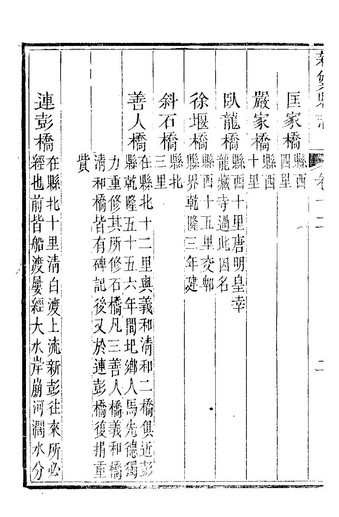 匡家橋 縣西
四里
嚴家橋 縣西
十里
臥龍橋 縣西十里唐明皇幸
龍藏寺過此因名
徐堰橋 縣西十五里交郫
縣界乾隆三年建
斜石橋 縣北
三里
善人橋 在縣北十二里與義和清和二橋俱近彭
縣乾隆五十五六年間圮鄉人馬先德獨
力重修其所修石橋凡三善人橋義和橋
清和橋皆有碑記後又於連彭橋後捐重
貲
連彭橋 在縣北十里清白渡上流新彭往來所必
經也前皆船渡屢經大水岸崩河濶水分